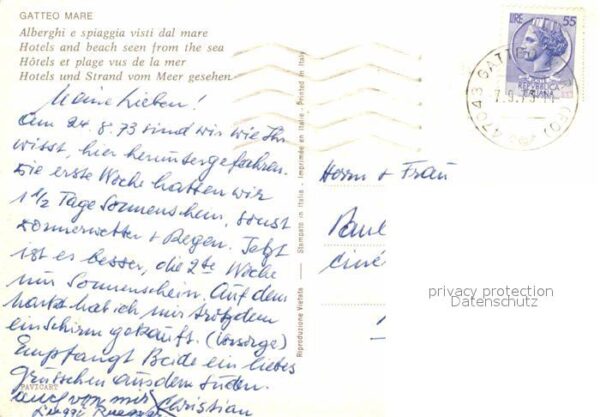 GATTEO MARE
Alberghi e spiaggia visti dal mare
Hotels and beach seen from the sea
Hôtels et plage vus de la mer
Hotels und Strand vom Meer gesehen
Meine Lieben!
Am 24.8.73 sind wir wie Ihr
wisst, hier heruntergefahren.
Die erste Woche hatten wir
1 1/2 Tage Sonnenschein, sonst
Donnerwetter + Regen. Jetzt
ist es besser, die 2te Woche
nur Sonnenschein. Auf dem
Markt hab ich mir trotzdem
ein Schirm gekauft. (Vorsorge)
Empfangt Beide ein liebes
Grüsschen aus dem Süden.
PAVICART
auch von mir Christian
Riproduzione Vietata - Stampato in Italia - Imprimée en Italie - Printed in Italy
LIRE 55
REPUBBLICA
ITALIANA
47043 GATTEO
7.9.73
Herrn + Frau
Paul
privacy protection
Datenschutz